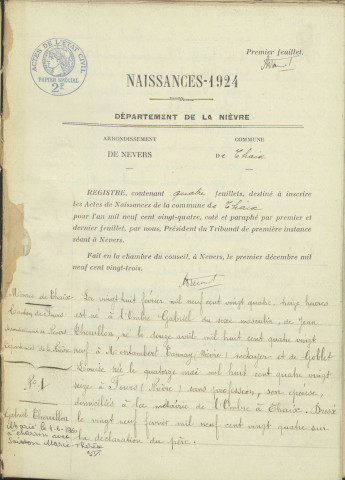 Premier feuillet.
ACTES DE L'ÉTAT CIVIL
PAPIER SPÉCIAL
2F
NAISSANCES-1924
DÉPARTEMENT DE LA NIÈVRE
ARRONDISSEMENT
COMMUNE
DE NEVERS
DE Thaix
REGISTRE, contenant quatre feuillets, destiné à inscrire
les Actes de Naissances de la commune de Thaix
pour l'an mil neuf cent vingt-quatre, coté et paraphé par premier et
dernier feuillet, par nous, Président du Tribunal de première instance
séant à Nevers.
Fait en la chambre du conseil, à Nevers, le premier décembre mil
neuf cent vingt-trois.
Mairie de Thaix
Le vingt huit février mil neuf cent vingt quatre, seize heures
est né à l'Ombre Gabriel du sexe masculin, de Jean
Département de la Nièvre
Theuillon, né le douze avril mil huit cent quatre vingt
neuf à (Nièvre) métayer et de Goblet
Louise née le quatorze mai mil huit cent quatre vingt
seize à Tours (Nièvre) sans profession, son épouse,
domiciliés à la locaterie de l'Ombre à Thaix. Dressé
le vingt neuf février mil neuf cent vingt quatre sur
la déclaration du père.
N° 1
Gabriel Theuillon
Marié le
à Charrin avec
Marie-Thérèse